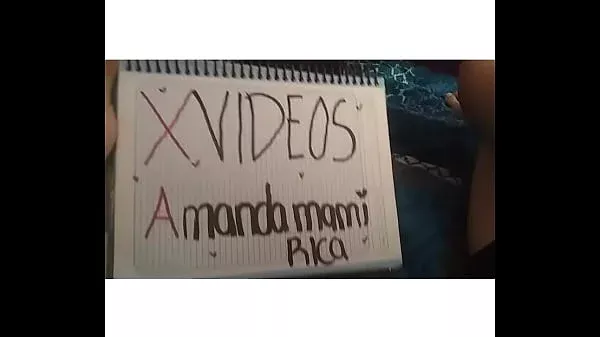 XVIDEOS
Amanda mami
RICA